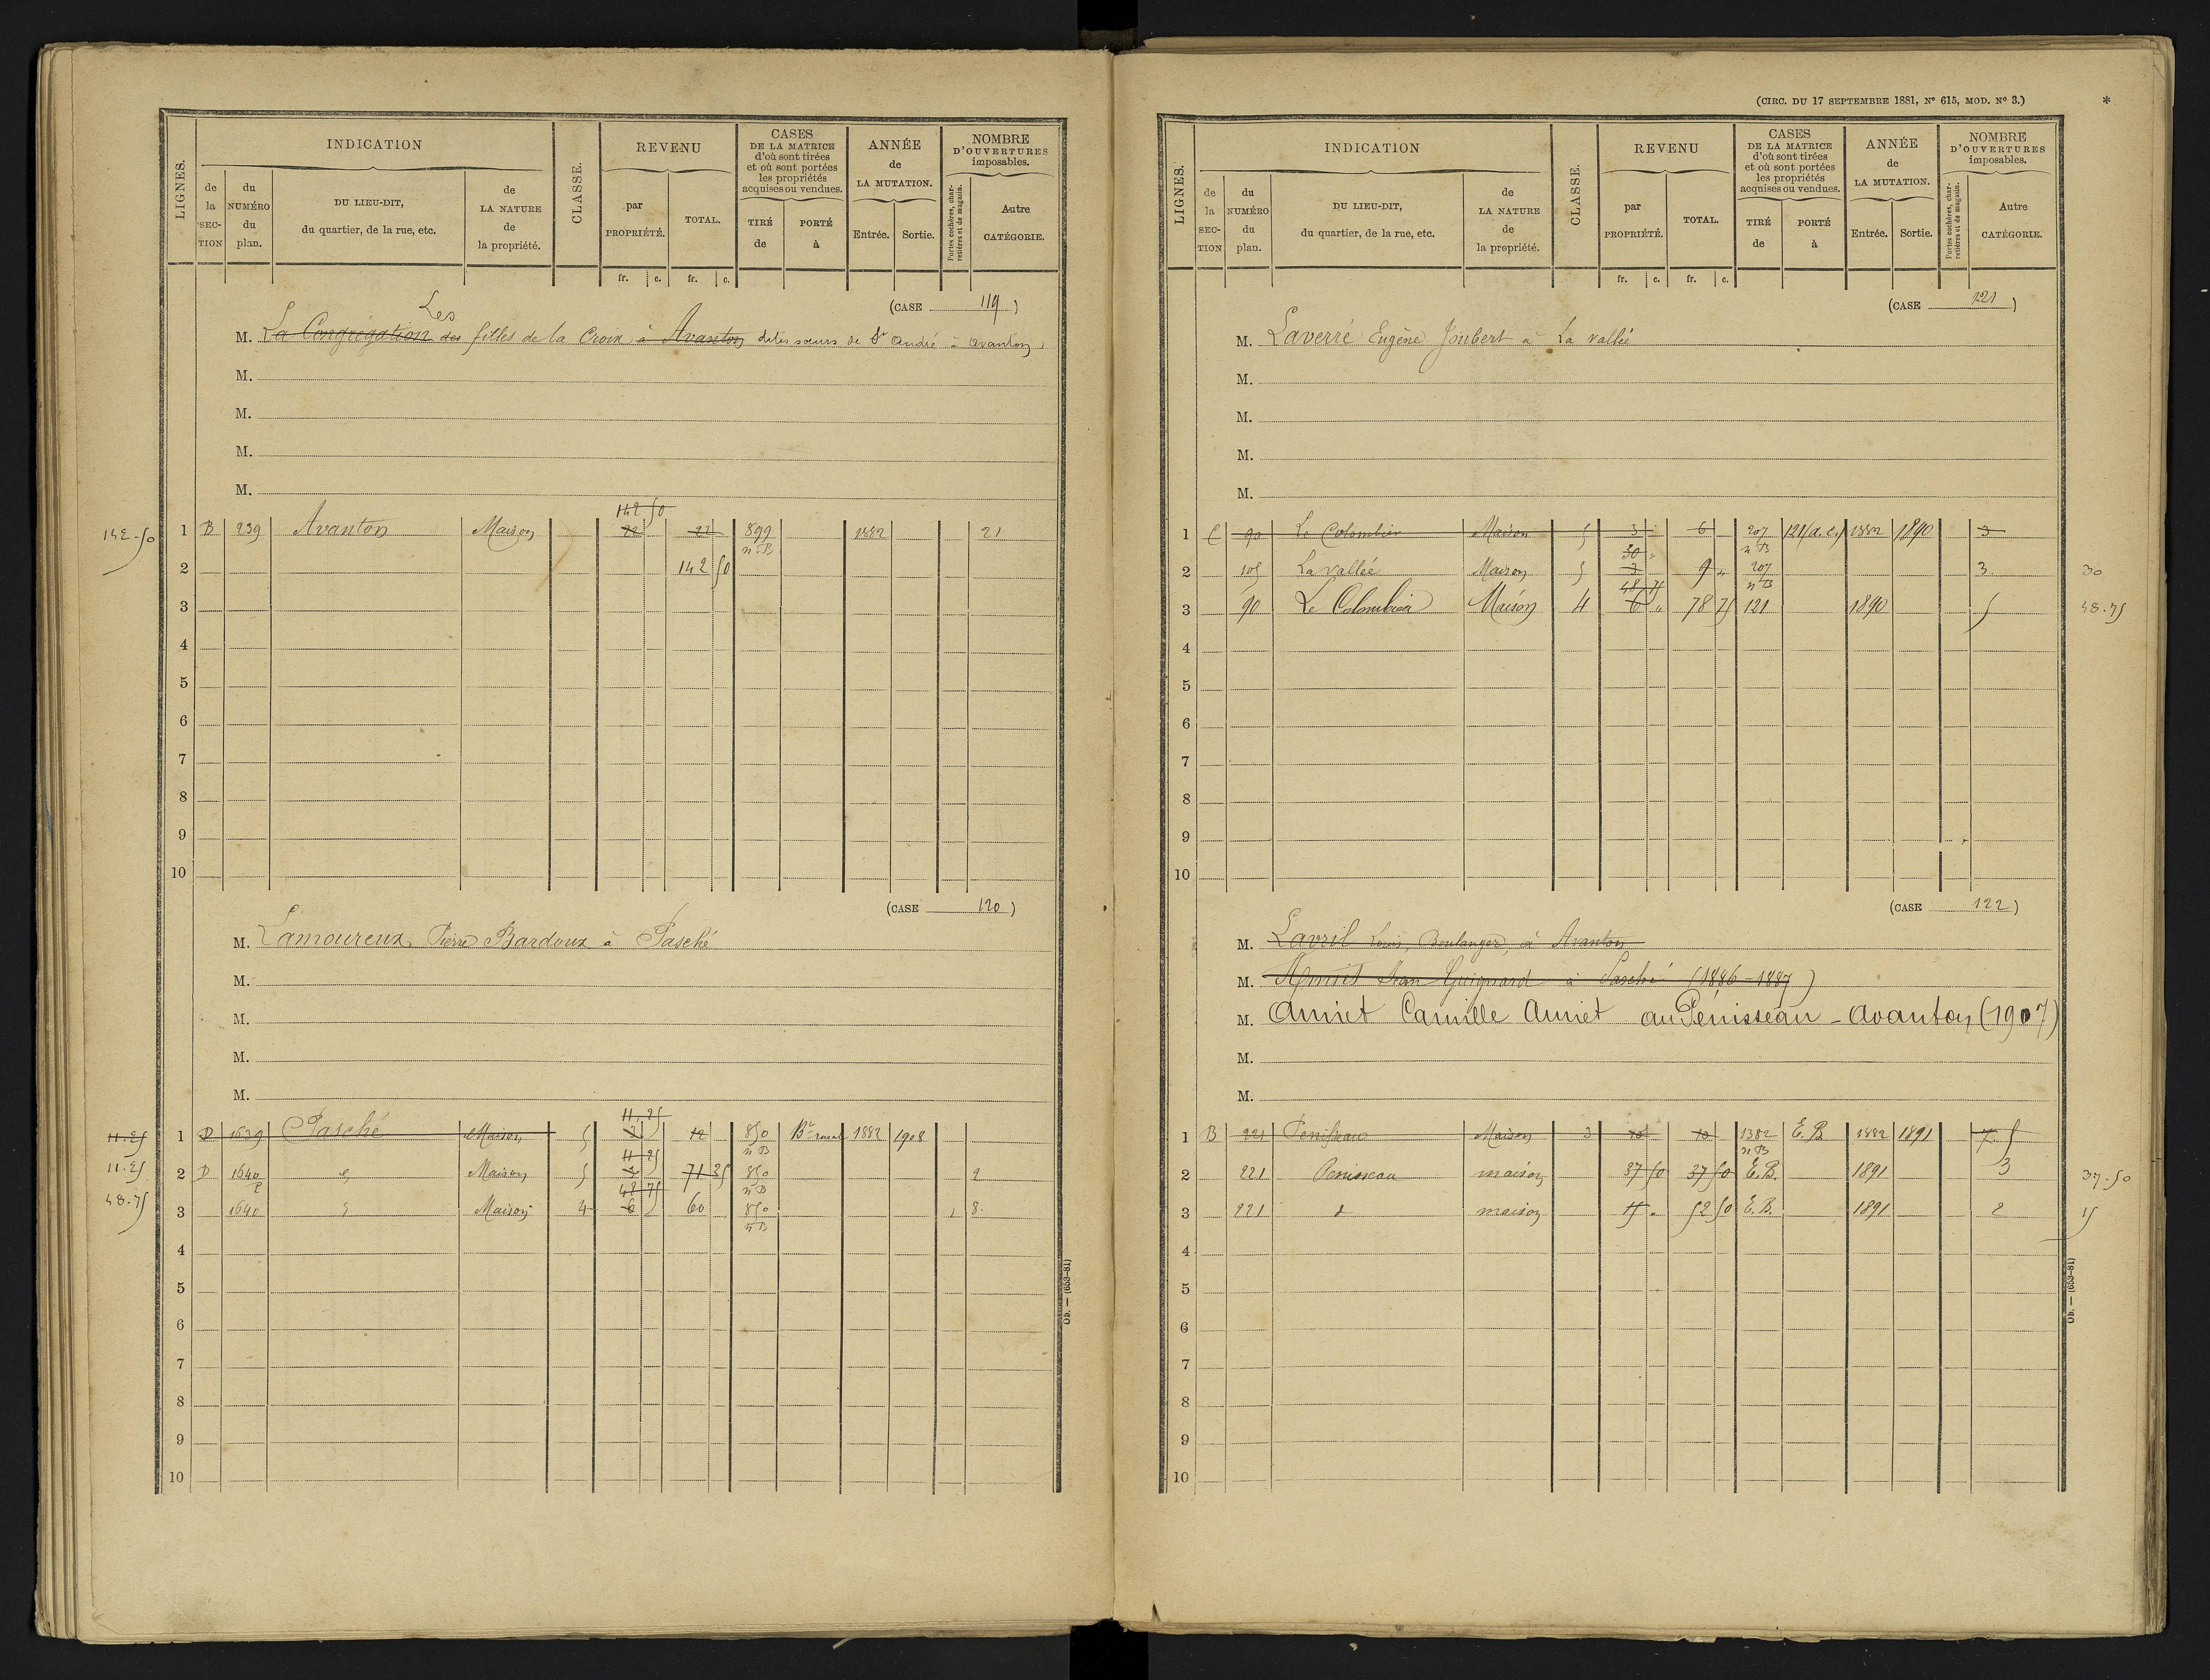 LIGNES.
INDICATION
CLASSE.
REVENU
CASES
DE LA MATRICE
d'où sont tirées
et où sont portées
les propriétés
acquises ou vendues.
ANNÉE
de
LA MUTATION.
NOMBRE
D'OUVERTURES
imposables.
de la SECTION
du NUMÉRO du plan.
DU LIEU-DIT,
du quartier, de la rue, etc.
de LA NATURE de la propriété.
par PROPRIÉTÉ.
TOTAL.
TIRÉ de
PORTÉ à
Entrée.
Sortie.
Portes cochères, charretières et de magasin.
Autre CATÉGORIE.
fr. c. fr. c.
(CASE 119)
Les
M. La Congrégation des filles de la Croix à Avanton dites sœurs de St André à avanton
M.
M.
M.
M.
142 50
142.50 1 B 239 Avanton Maison 22 22 899 1882 21
n.B
2 142 50
3
4
5
6
7
8
9
10
(CASE 120)
M. Lamoureux Pierre Bardoux à Pasché
M.
M.
M.
M.
11.25
11.25 1 D 1639 Pasché Maison 5 12 850 Bt rural 1882 1908
11 25 n B
11.25 2 D 1640 Maison 5 71 25 850 2
P 48 75 n B
48.75 3 1640 Maison 4 6 60 850 1 8
n B
4
5
6
7
8
9
10
Ob. — (653-81)
(CIRC. DU 17 SEPTEMBRE 1881, N° 615, MOD. N° 3.) *
LIGNES.
INDICATION
CLASSE.
REVENU
CASES
DE LA MATRICE
d'où sont tirées
et où sont portées
les propriétés
acquises ou vendues.
ANNÉE
de
LA MUTATION.
NOMBRE
D'OUVERTURES
imposables.
de la SECTION
du NUMÉRO du plan.
DU LIEU-DIT,
du quartier, de la rue, etc.
de LA NATURE de la propriété.
par PROPRIÉTÉ.
TOTAL.
TIRÉ de
PORTÉ à
Entrée.
Sortie.
Portes cochères, charretières et de magasin.
Autre CATÉGORIE.
fr. c. fr. c.
(CASE 121)
M. Laverré Eugène Joubert à La vallée
M.
M.
M.
M.
1 C 90 Le Colombier Maison 5 3 6 207 121(a.c.) 1882 1890 3
30 n B
2 105 La vallée Maison 5 3 9 207 3. 30
48 75 n B
3 90 Le Colombier Maison 4 6 78 75 121 1890 5 48.75
4
5
6
7
8
9
10
(CASE 122)
M. Lavril Louis, Boulanger, à Avanton
M. Amiet Jean Guignard à Pasché (1886-1887)
M. Amiet Camille Amiet au Pénisseau - Avanton (1907)
M.
M.
1 B 221 Penisseau Maison 3 10 10 1382 E.B 1882 1891 7 5
n B
2 221 Penisseau maison 37 50 37 50 E.B. 1891 3 37.50
3 221 maison 15 52 50 E.B. 1891 2 15
4
5
6
7
8
9
10
Ob. — (653-81)